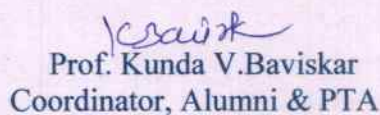 Prof. Kunda V.Baviskar
Coordinator, Alumni & PTA